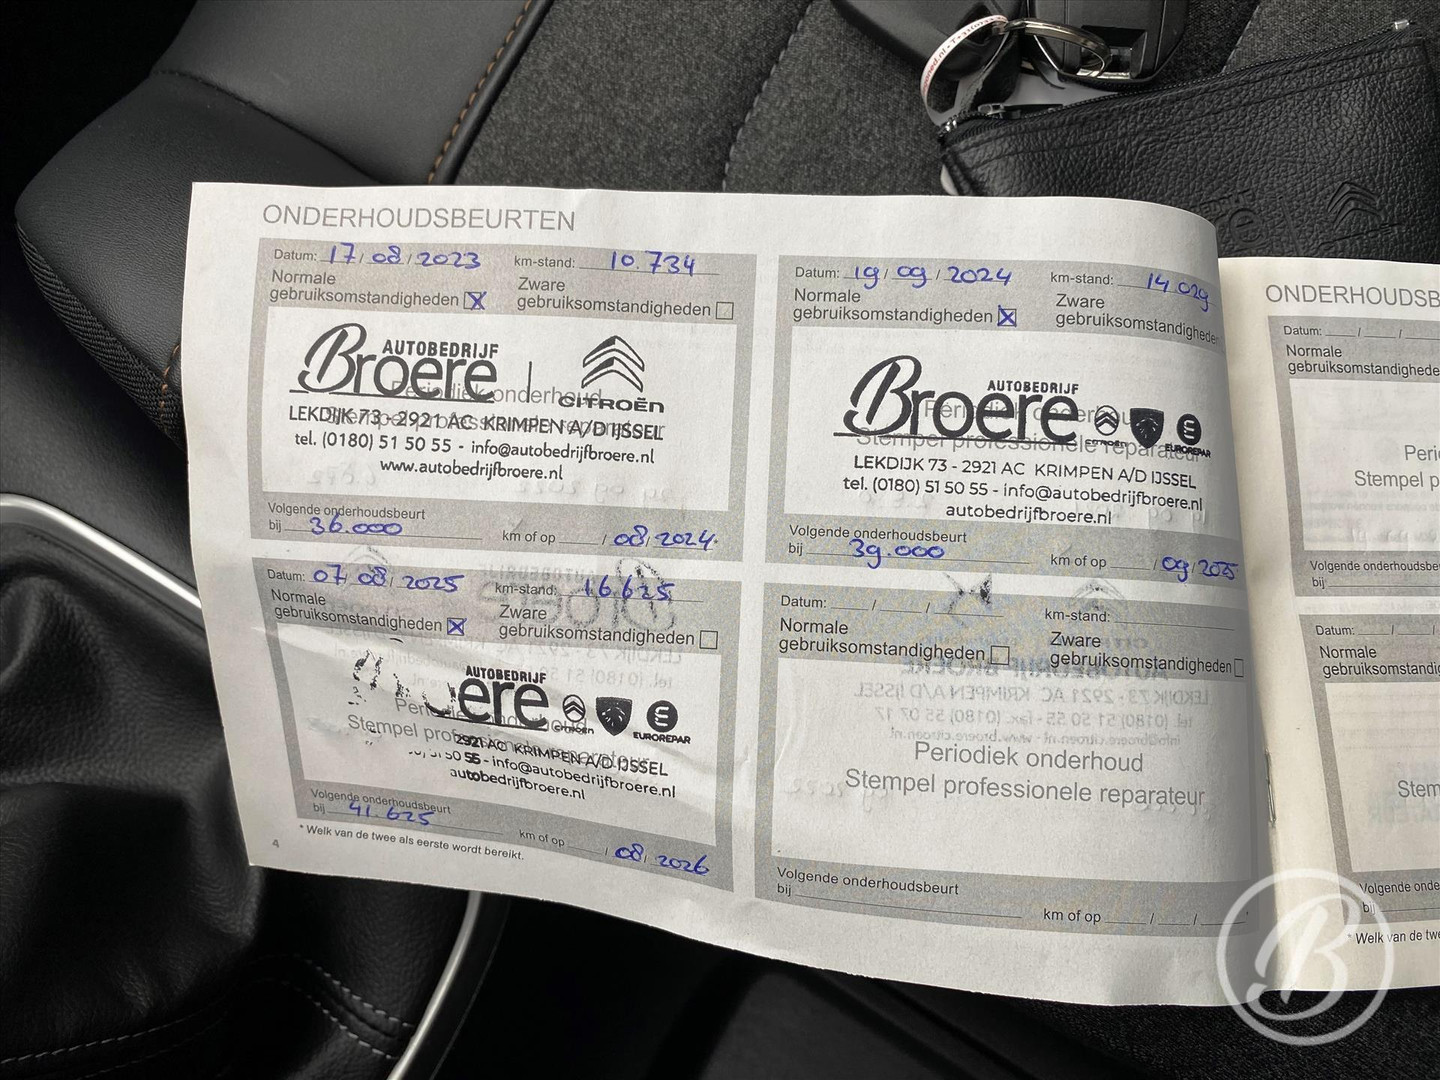 ONDERHOUDSBEURTEN
Datum: 17/08/2023 km-stand: 10.734
Normale
gebruiksomstandigheden
Zware
gebruiksomstandigheden
AUTOBEDRIJF
Broere
CITROËN
LEKDIJK 73 - 2921 AC KRIMPEN A/D IJSSEL
tel. (0180) 51 50 55 - info@autobedrijfbroere.nl
www.autobedrijfbroere.nl
Volgende onderhoudsbeurt
bij 36.000 km of op / 08/2024.
Datum: 19/09/2024 km-stand: 14.029
Normale
gebruiksomstandigheden
Zware
gebruiksomstandigheden
AUTOBEDRIJF
Broere
CITROËN
EUROREPAR
Periodiek onderhoud
Stempel professionele reparateur
LEKDIJK 73 - 2921 AC KRIMPEN A/D IJSSEL
tel. (0180) 51 50 55 - info@autobedrijfbroere.nl
autobedrijfbroere.nl
Volgende onderhoudsbeurt
bij 39.000 km of op / 09/2025
Datum: 07/08/2025 km-stand: 16.625
Normale
gebruiksomstandigheden
Zware
gebruiksomstandigheden
AUTOBEDRIJF
ere
CITROËN
EUROREPAR
2921 AC KRIMPEN A/D IJSSEL
51 50 55 - info@autobedrijfbroere.nl
autobedrijfbroere.nl
Volgende onderhoudsbeurt
bij 41.625 km of op / 08/2026
* Welk van de twee als eerste wordt bereikt.
4
Datum: / / km-stand:
Normale
gebruiksomstandigheden
Zware
gebruiksomstandigheden
Periodiek onderhoud
Stempel professionele reparateur
Volgende onderhoudsbeurt
bij km of op / /
ONDERHOUDSB
Datum: / /
Normale
gebruiksomstandighede
Peri
Stempel p
Volgende onderhoudsbe
bij
Datum: / /
Normale
gebruiksomstandig
Stem
Volgende onde
bij
* Welk van de twe
B